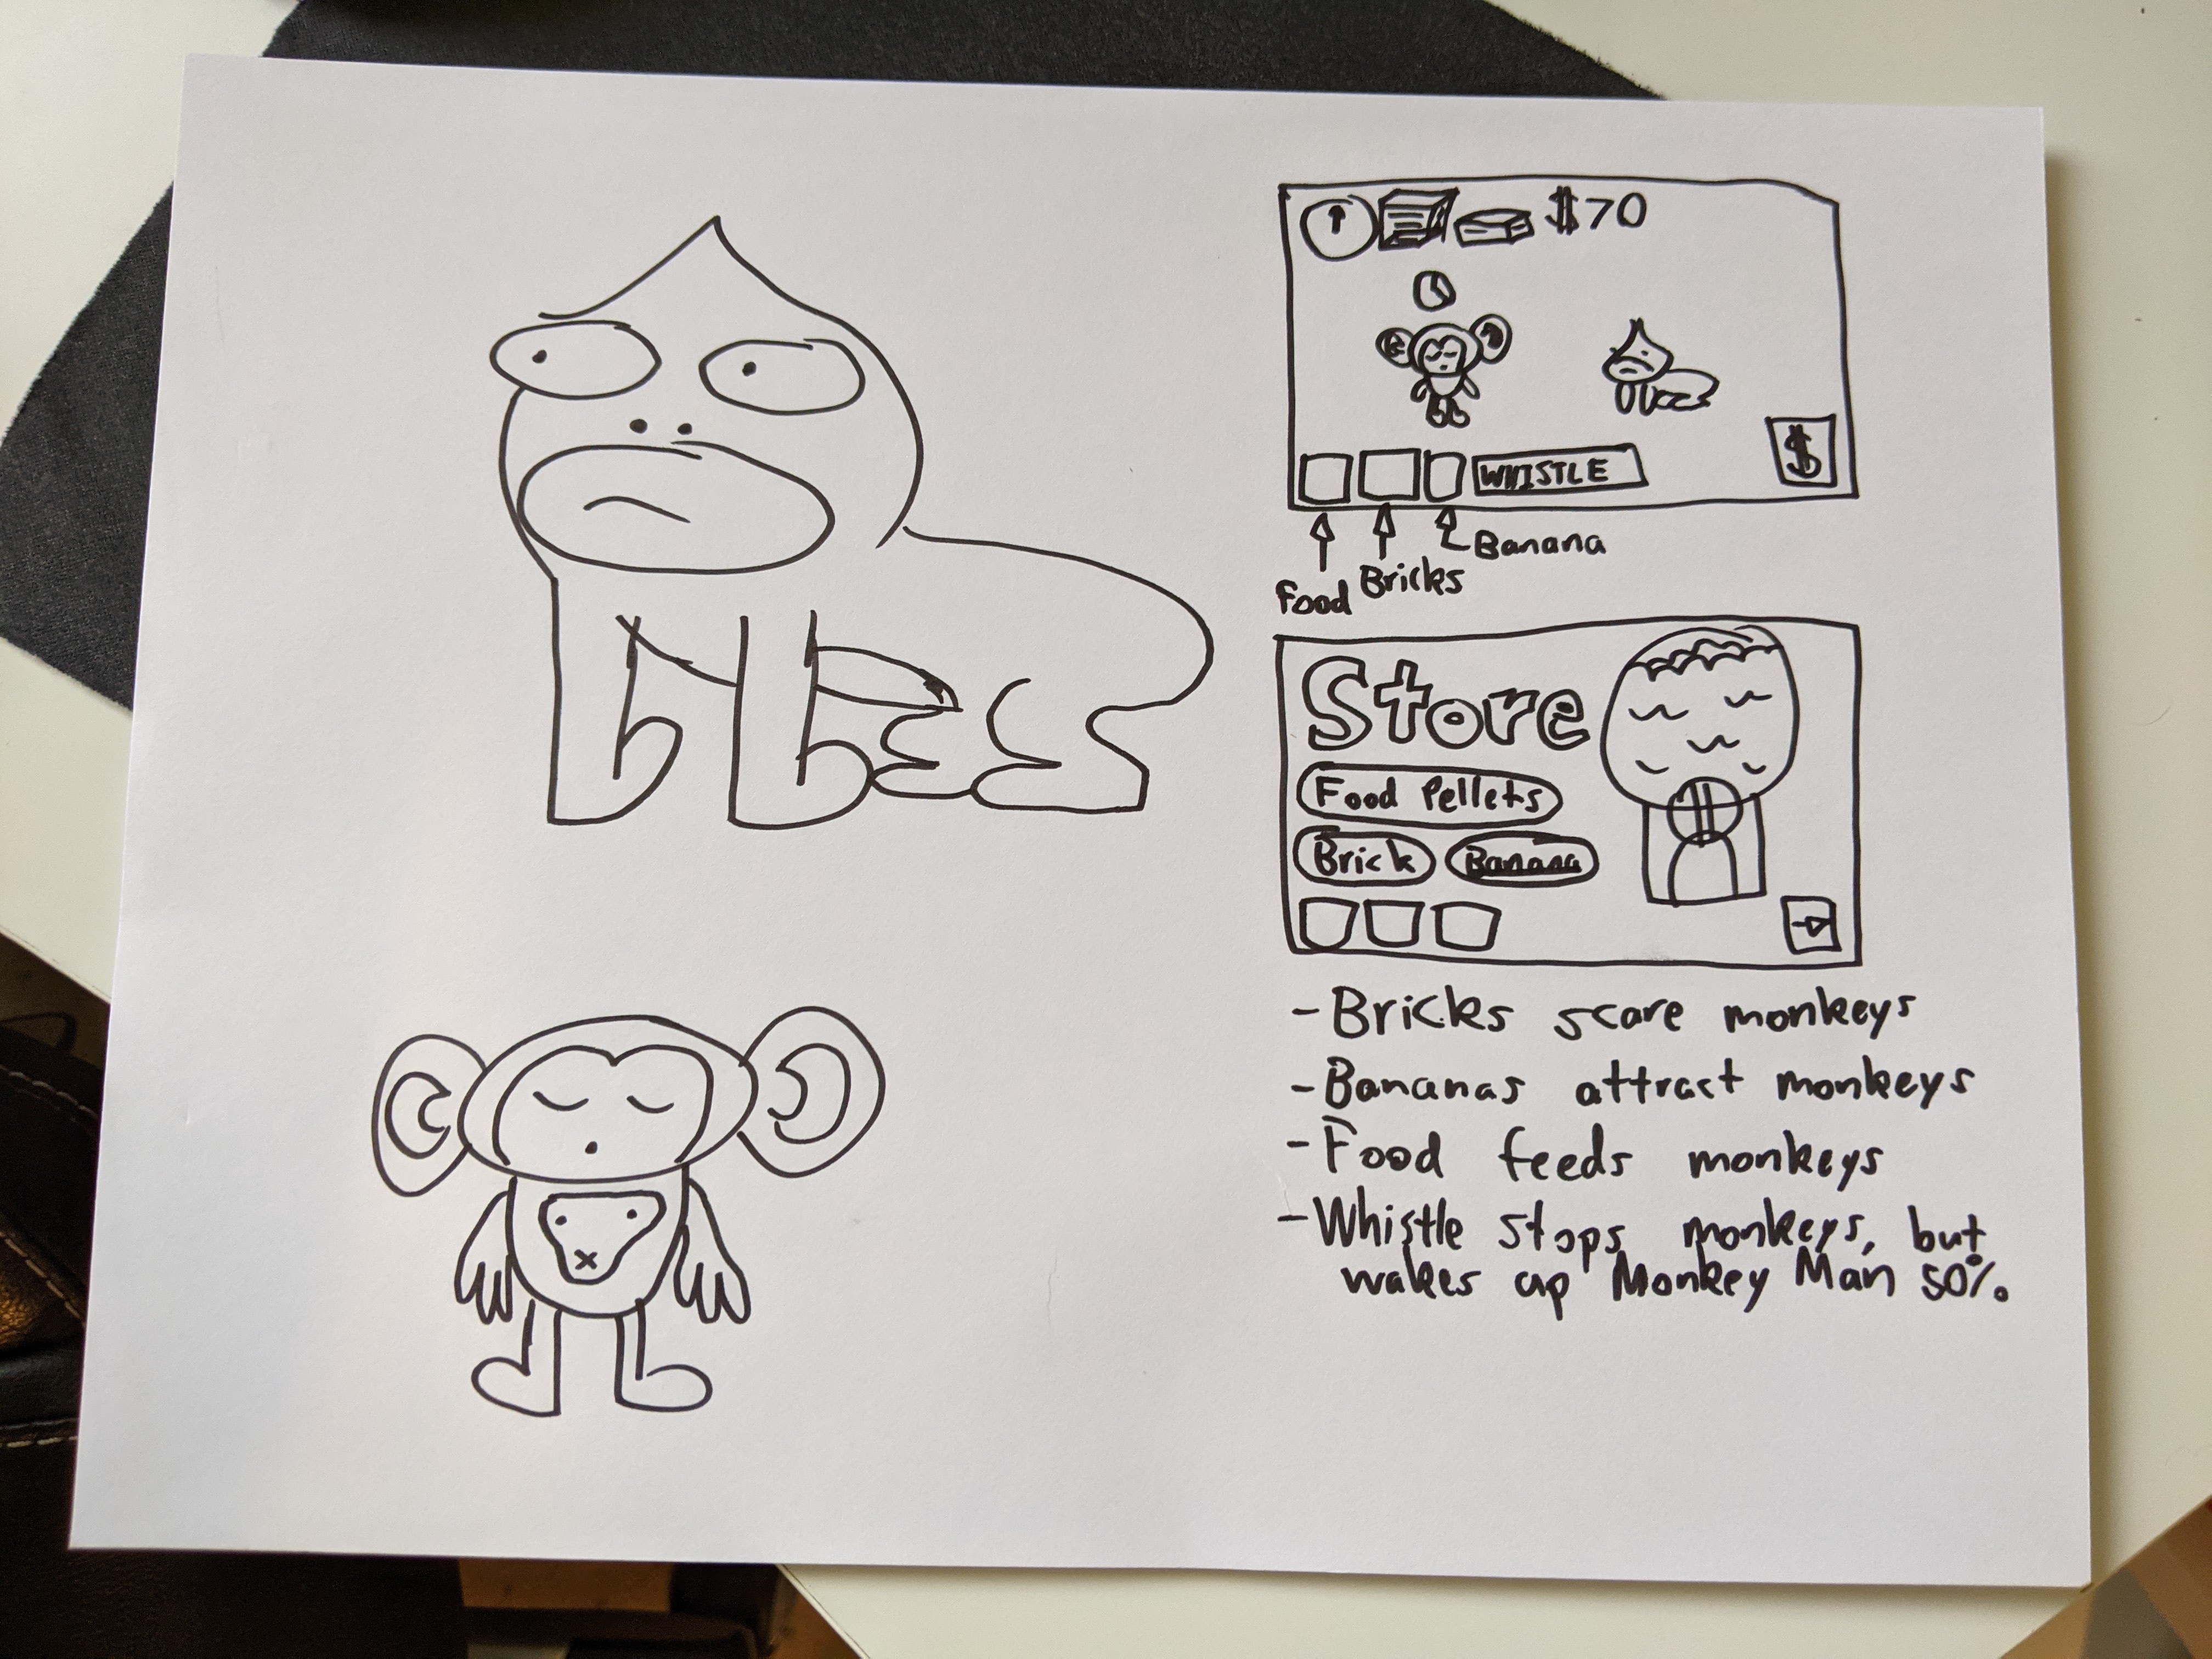 $70
WHISTLE
$
Banana
Bricks
Food
Store
Food Pellets
Brick
Banana
- Bricks scare monkeys
- Bananas attract monkeys
- Food feeds monkeys
- Whistle stops monkeys, but
wakes up Monkey Man 50%.